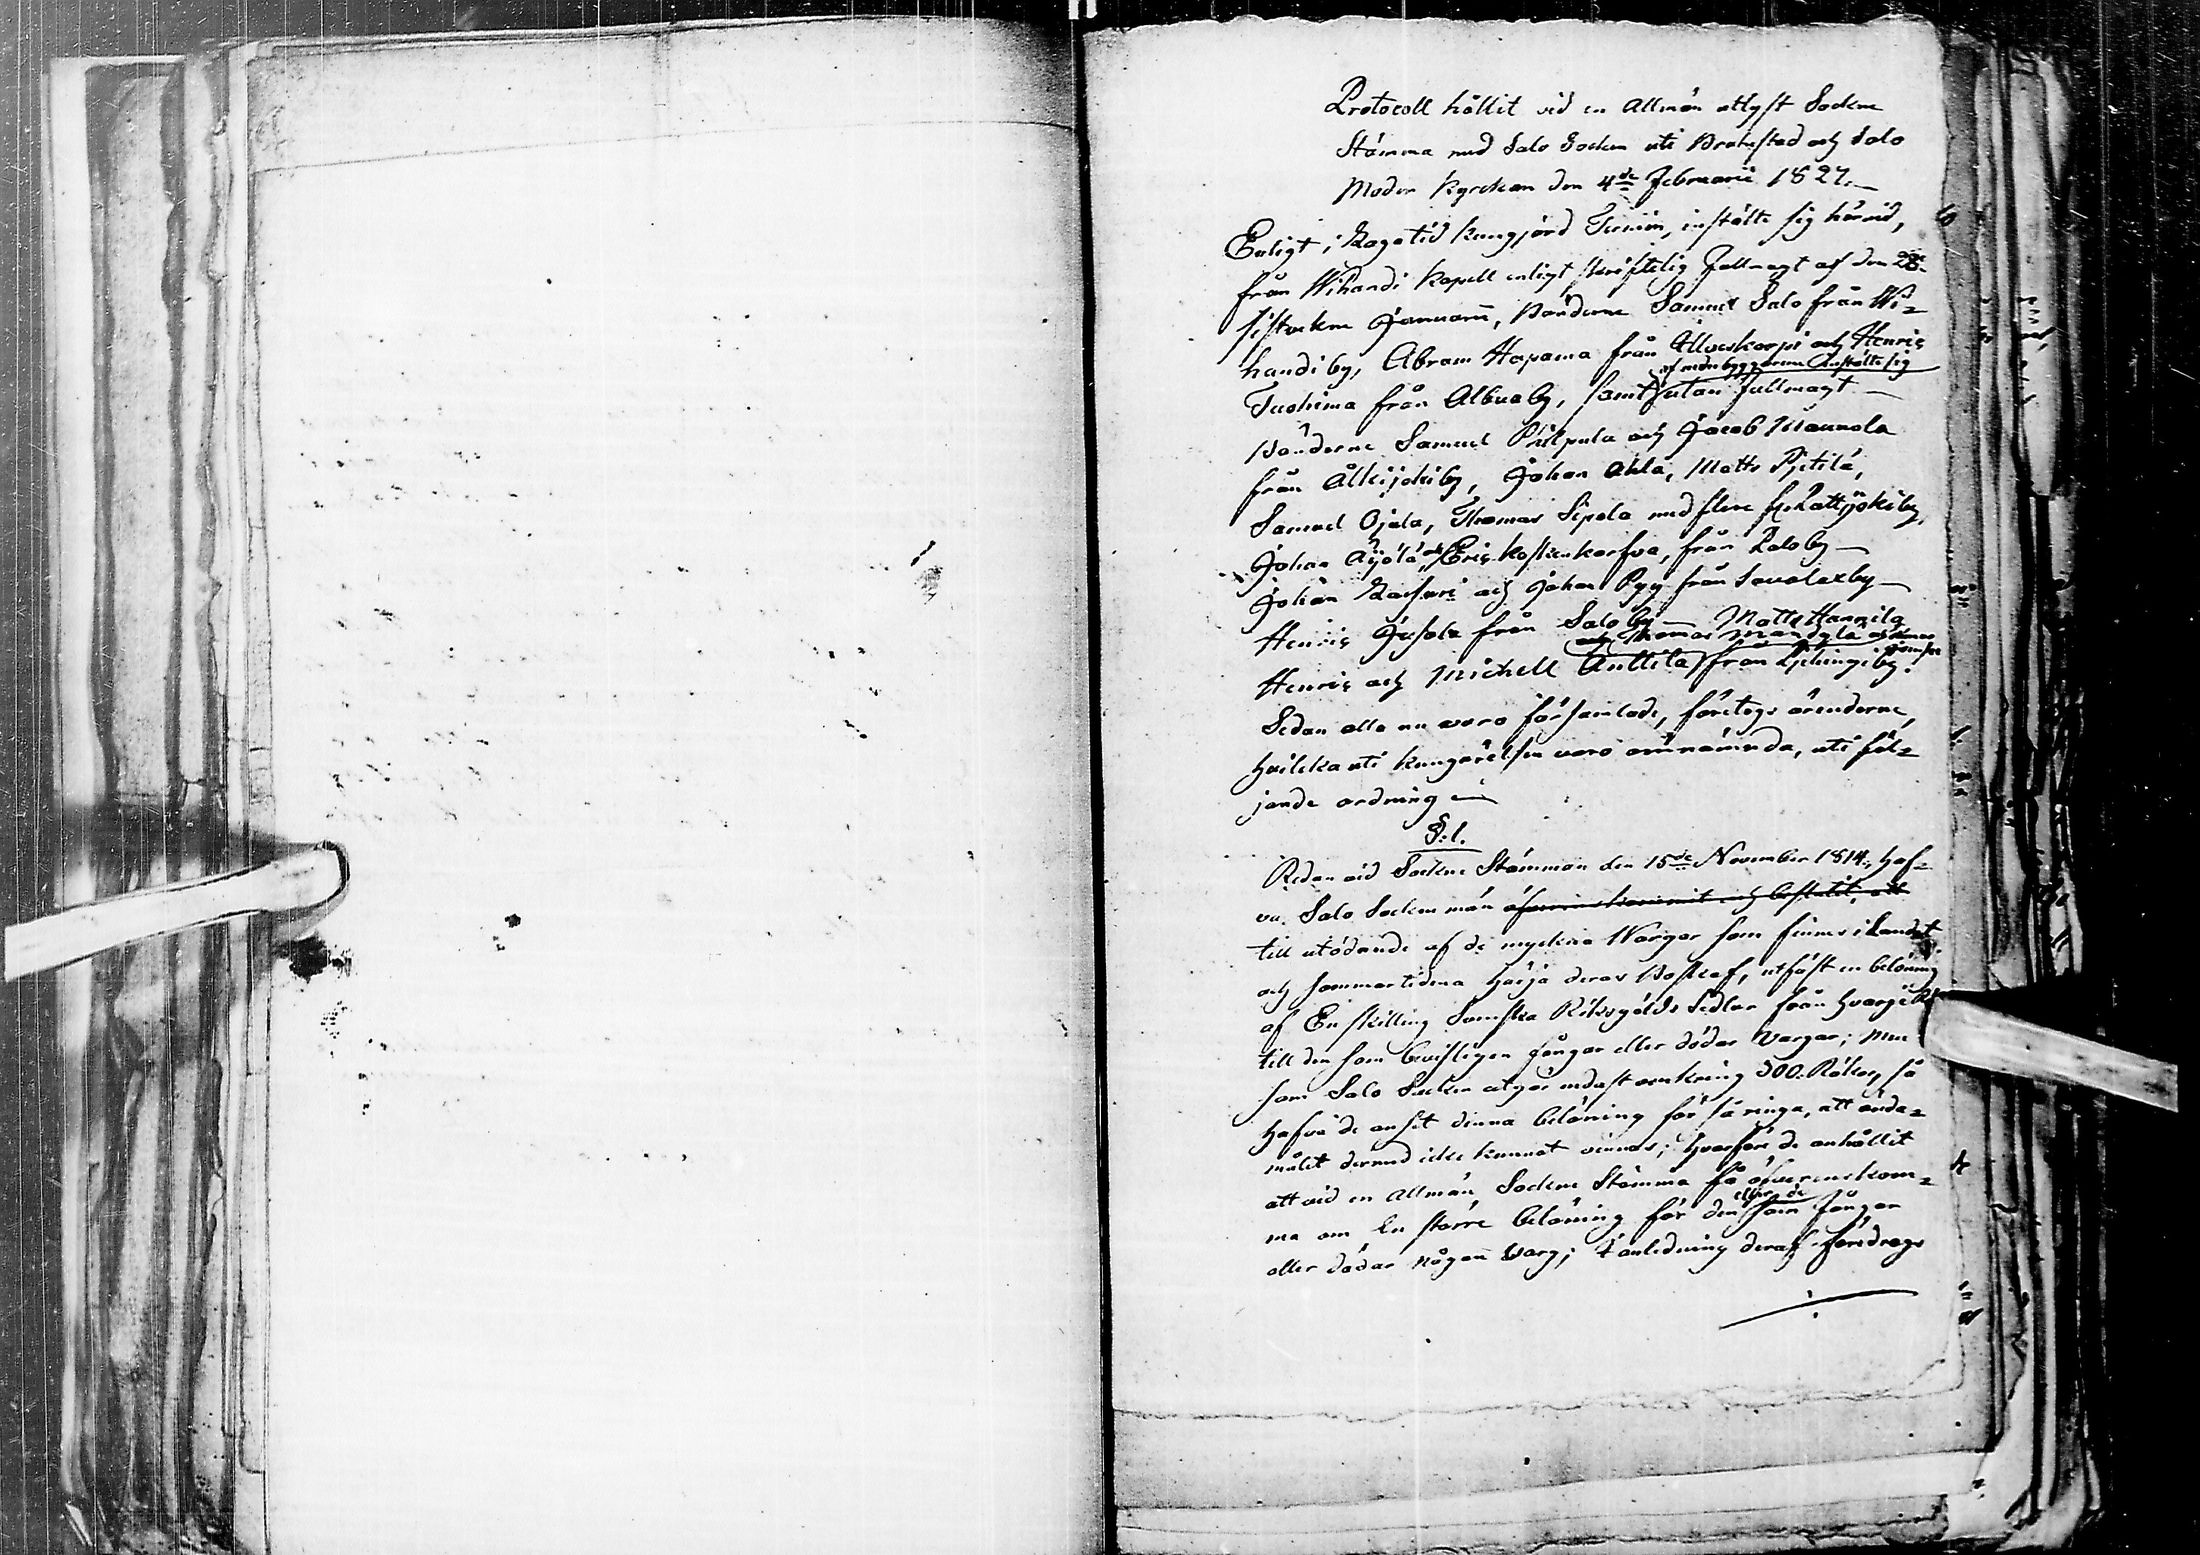 Protocoll hållit vid en Allmän utlyst Sockne
Stämma med Salo Socken uti Brahestad och Salo
Moder Kyrckan den 4de Februarii 1827.
Enligt i Laga tid kungjord Termin, instälte sig härvid,
från Wihandi Kapell enligt skriftelig Fullmagt af den 28
sistvekne Januarii, Bönderne Samuel Salo från Wi=
handi by, Abram Hapama från Illveskorpi och Henric
af menbyggarene Instälte sig
Tuohima från Albua by, samt utan fullmagt
Bönderne Samuel Philpula och Jacob Mannola
från Olkijoki by, Johan Ahla, Matts Pjetilä,
Samuel Ojala, Thomas Sipola med flere fr Pattijoki by,
Johan Äijälä och Eric Koskenkorfva, från Palo by
Johan Kassari och Johan Pyy från Savolax by
Henric Jusola från Salo by Matts Hannila
och Thomas Mandyla
Henric och Michell Anttila från Ljchingi by.
Sedan alla nu voro församlade, företogs ärenderne,
hvilcka uti kungörelsen voro omnämnda, uti föl=
jande ordning
§. 1.
Redan vid Sockne Stämman den 15de November 1814, haf=
va Salo Sockne män öfverenskommit och beslutit, att
till utödande af de myckna Wargar som finnes i Landet
och sommartiderna härja deras Boskap, utfäst en belöning
af En skilling Svenska Riksgälds Sedlar från hvarje Rök
till den som bevisligen fångar eller dödar Vargar; men
som Salo Socken utgör endast omkring 300. Rökar, så
hafva de ansett denna belöning för så ringa, att ända=
målet dermed icke kunnat vinnas; hvarföre de anhållit
att vid en Allmän Sockne Stämma få öfverenskom=
eller de
ma om en större belöning för den som fångar
eller dödar någon Varg; I anledning deraf föredrogs